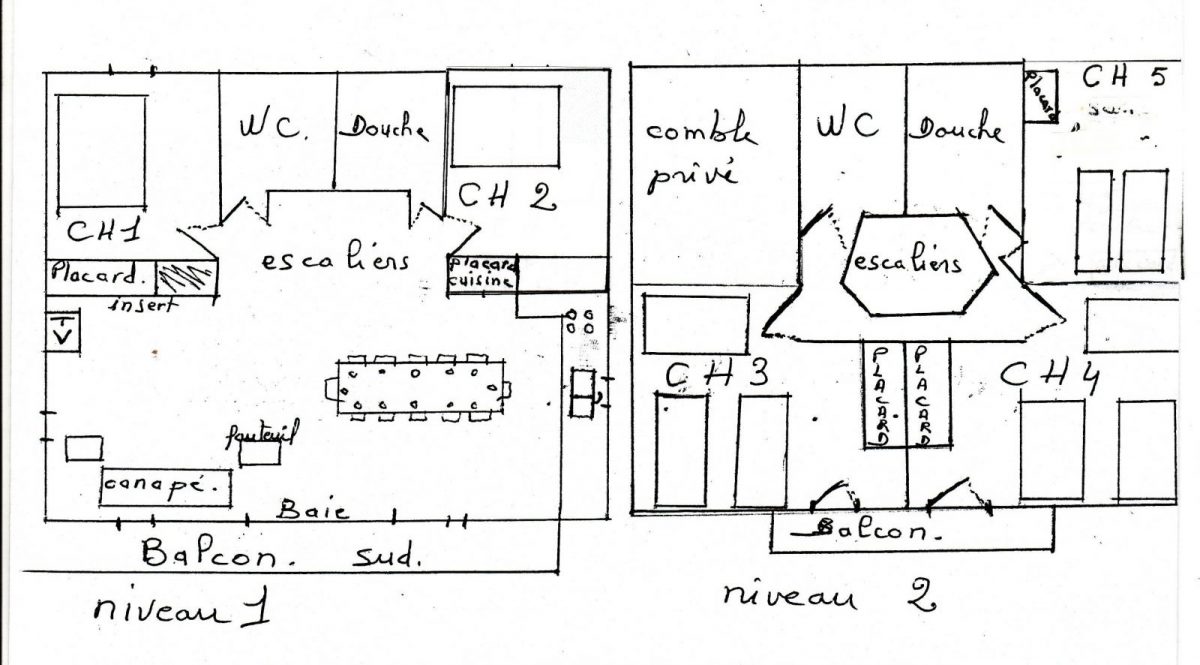 WC.
Douche
CH 2
CH1
escaliers
Placard.
insert
placard
cuisine
TV
fauteuil
canapé.
Baie
Balcon. sud.
niveau 1
comble
privé
WC
Douche
Placard
CH 5
escaliers
CH 3
PLACARD
PLACARD
CH4
Balcon.
niveau 2